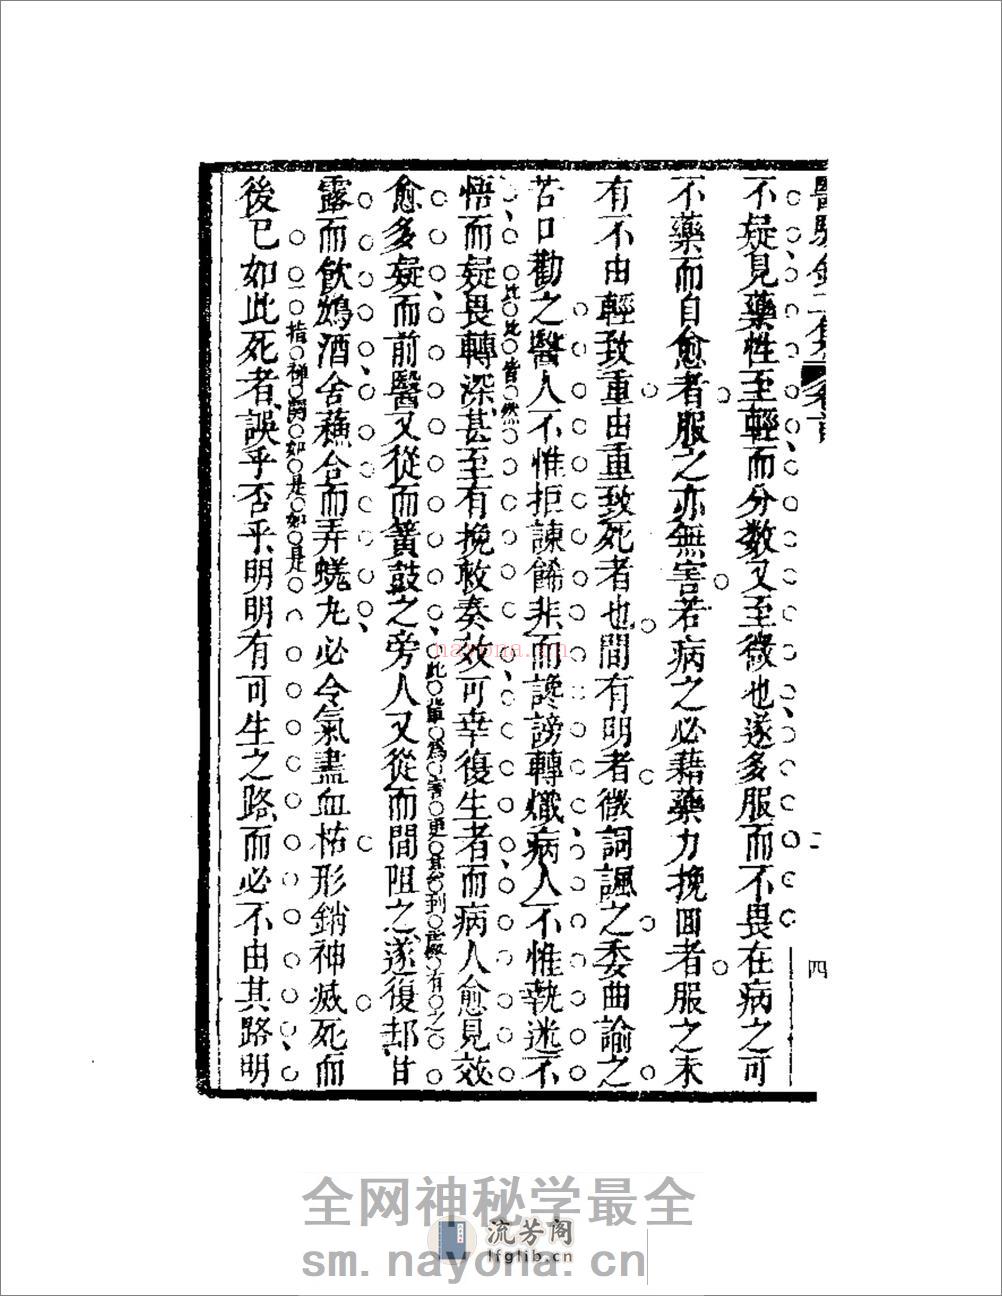 不疑見藥性至輕而分数又至微也遂多服而不畏在病之可
不藥而自愈者服之亦無害若病之必藉藥力挽回者服之未
有不由輕致重由重致死者也間有明者微詞諷之委曲諭之
苦口勸之醫人不惟拒諫餙非而讒謗轉熾病人不惟執迷不
此此皆然
悟而疑畏轉深甚至有挽救奏效可幸復生者而病人愈見效
愈多疑而前醫又從而簧鼓之旁人又從而間阻之遂復却甘
此輩為害更甚到處有之
露而飲鴆酒舍蘇合而弄蜣丸必令氣盡血枯形銷神滅死而
後已如此死者誤乎否乎明明有可生之路而必不由其路明
一指禪關如是如是
四
nayona.cn
全网神秘学最全
流芳阁
lfglib.cn
sm.nayona.cn